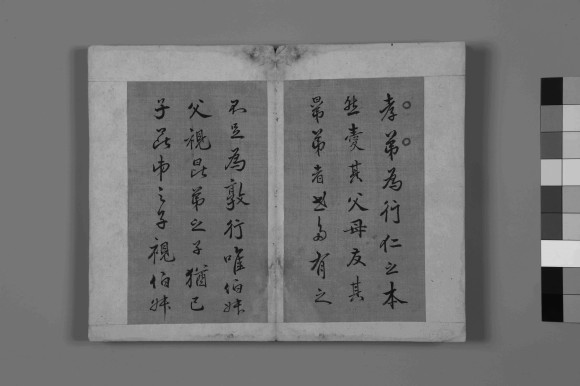 孝弟為行仁之本
然愛其父母友其
昆弟者世多有之
不足為敦行唯伯姊
父視昆弟之子猶己
子昆弟之子視伯姊